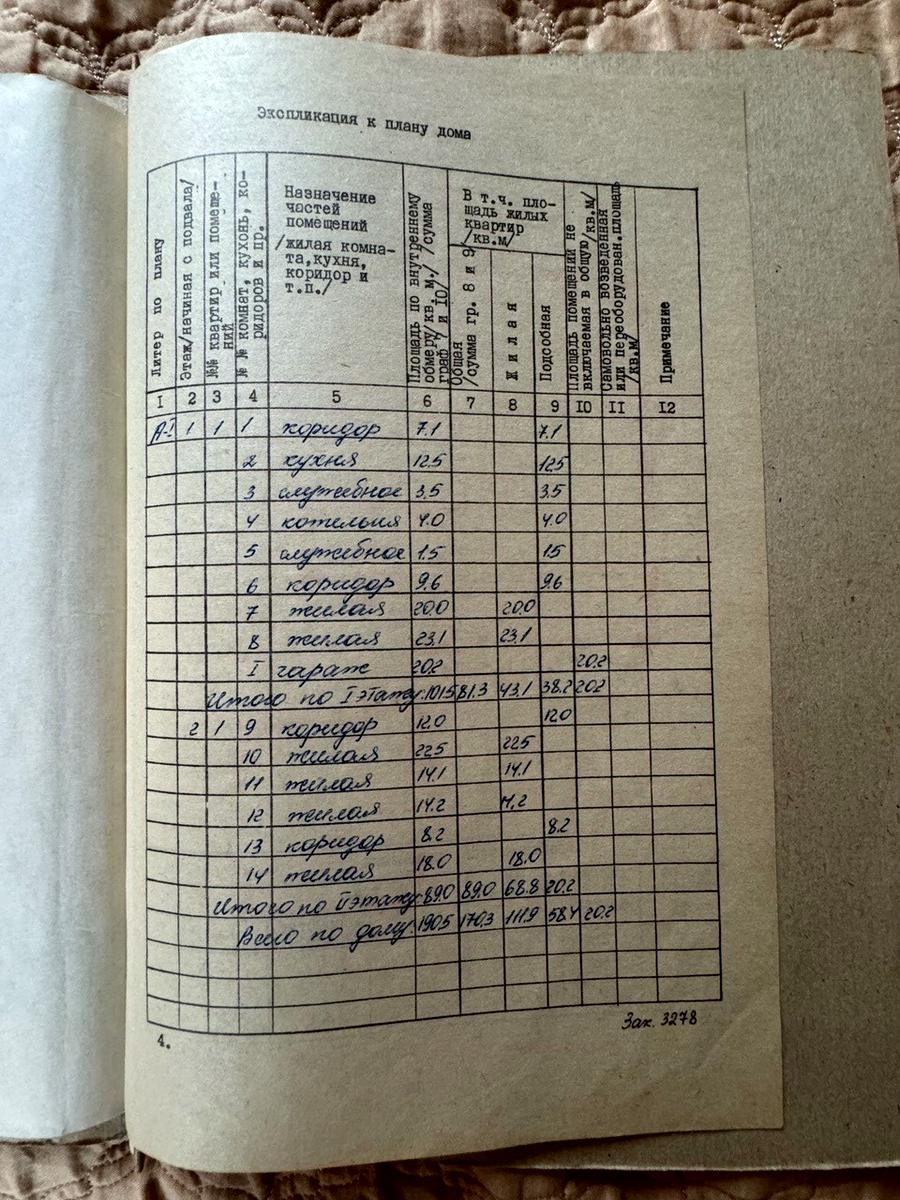 Экспликация к плану дома
Литер по плану
Этаж/начиная с подвала/
№№ квартир или помеще-
ний
№ № комнат, кухонь, ко-
ридоров и пр.
Назначение
частей
помещений
/жилая комна-
та,кухня,
коридор и
т.п./
Площадь по внутреннему
обмеру/кв. м./ /сумма
граф 7 и 10/
В т.ч. пло-
щадь жилых
квартир
/кв.м/
Общая
/сумма гр. 8 и 9
Жилая
Подсобная
Площадь помещений не
включаемая в общую/кв.м/
Самовольно возведенная
или переоборудован.площадь
/кв.м/
Примечание
I 2 3 4 5 6 7 8 9 IO II I2
А-I 1 1 1 коридор 7.1 7.1
2 кухня 12.5 12.5
3 служебное 3.5 3.5
4 котельня 4.0 4.0
5 служебное 1.5 1.5
6 коридор 9.6 9.6
7 жилая 20.0 20.0
8 жилая 23.1 23.1
I гараж 20.2 20.2
Итого по I этажу: 101.5 81.3 43.1 38.2 20.2
2 1 9 коридор 12.0 12.0
10 жилая 22.5 22.5
11 жилая 14.1 14.1
12 жилая 14.2 14.2
13 коридор 8.2 8.2
14 жилая 18.0 18.0
Итого по II этажу: 89.0 89.0 68.8 20.2
Всего по дому: 190.5 170.3 111.9 58.4 20.2
Зак. 3278
4.